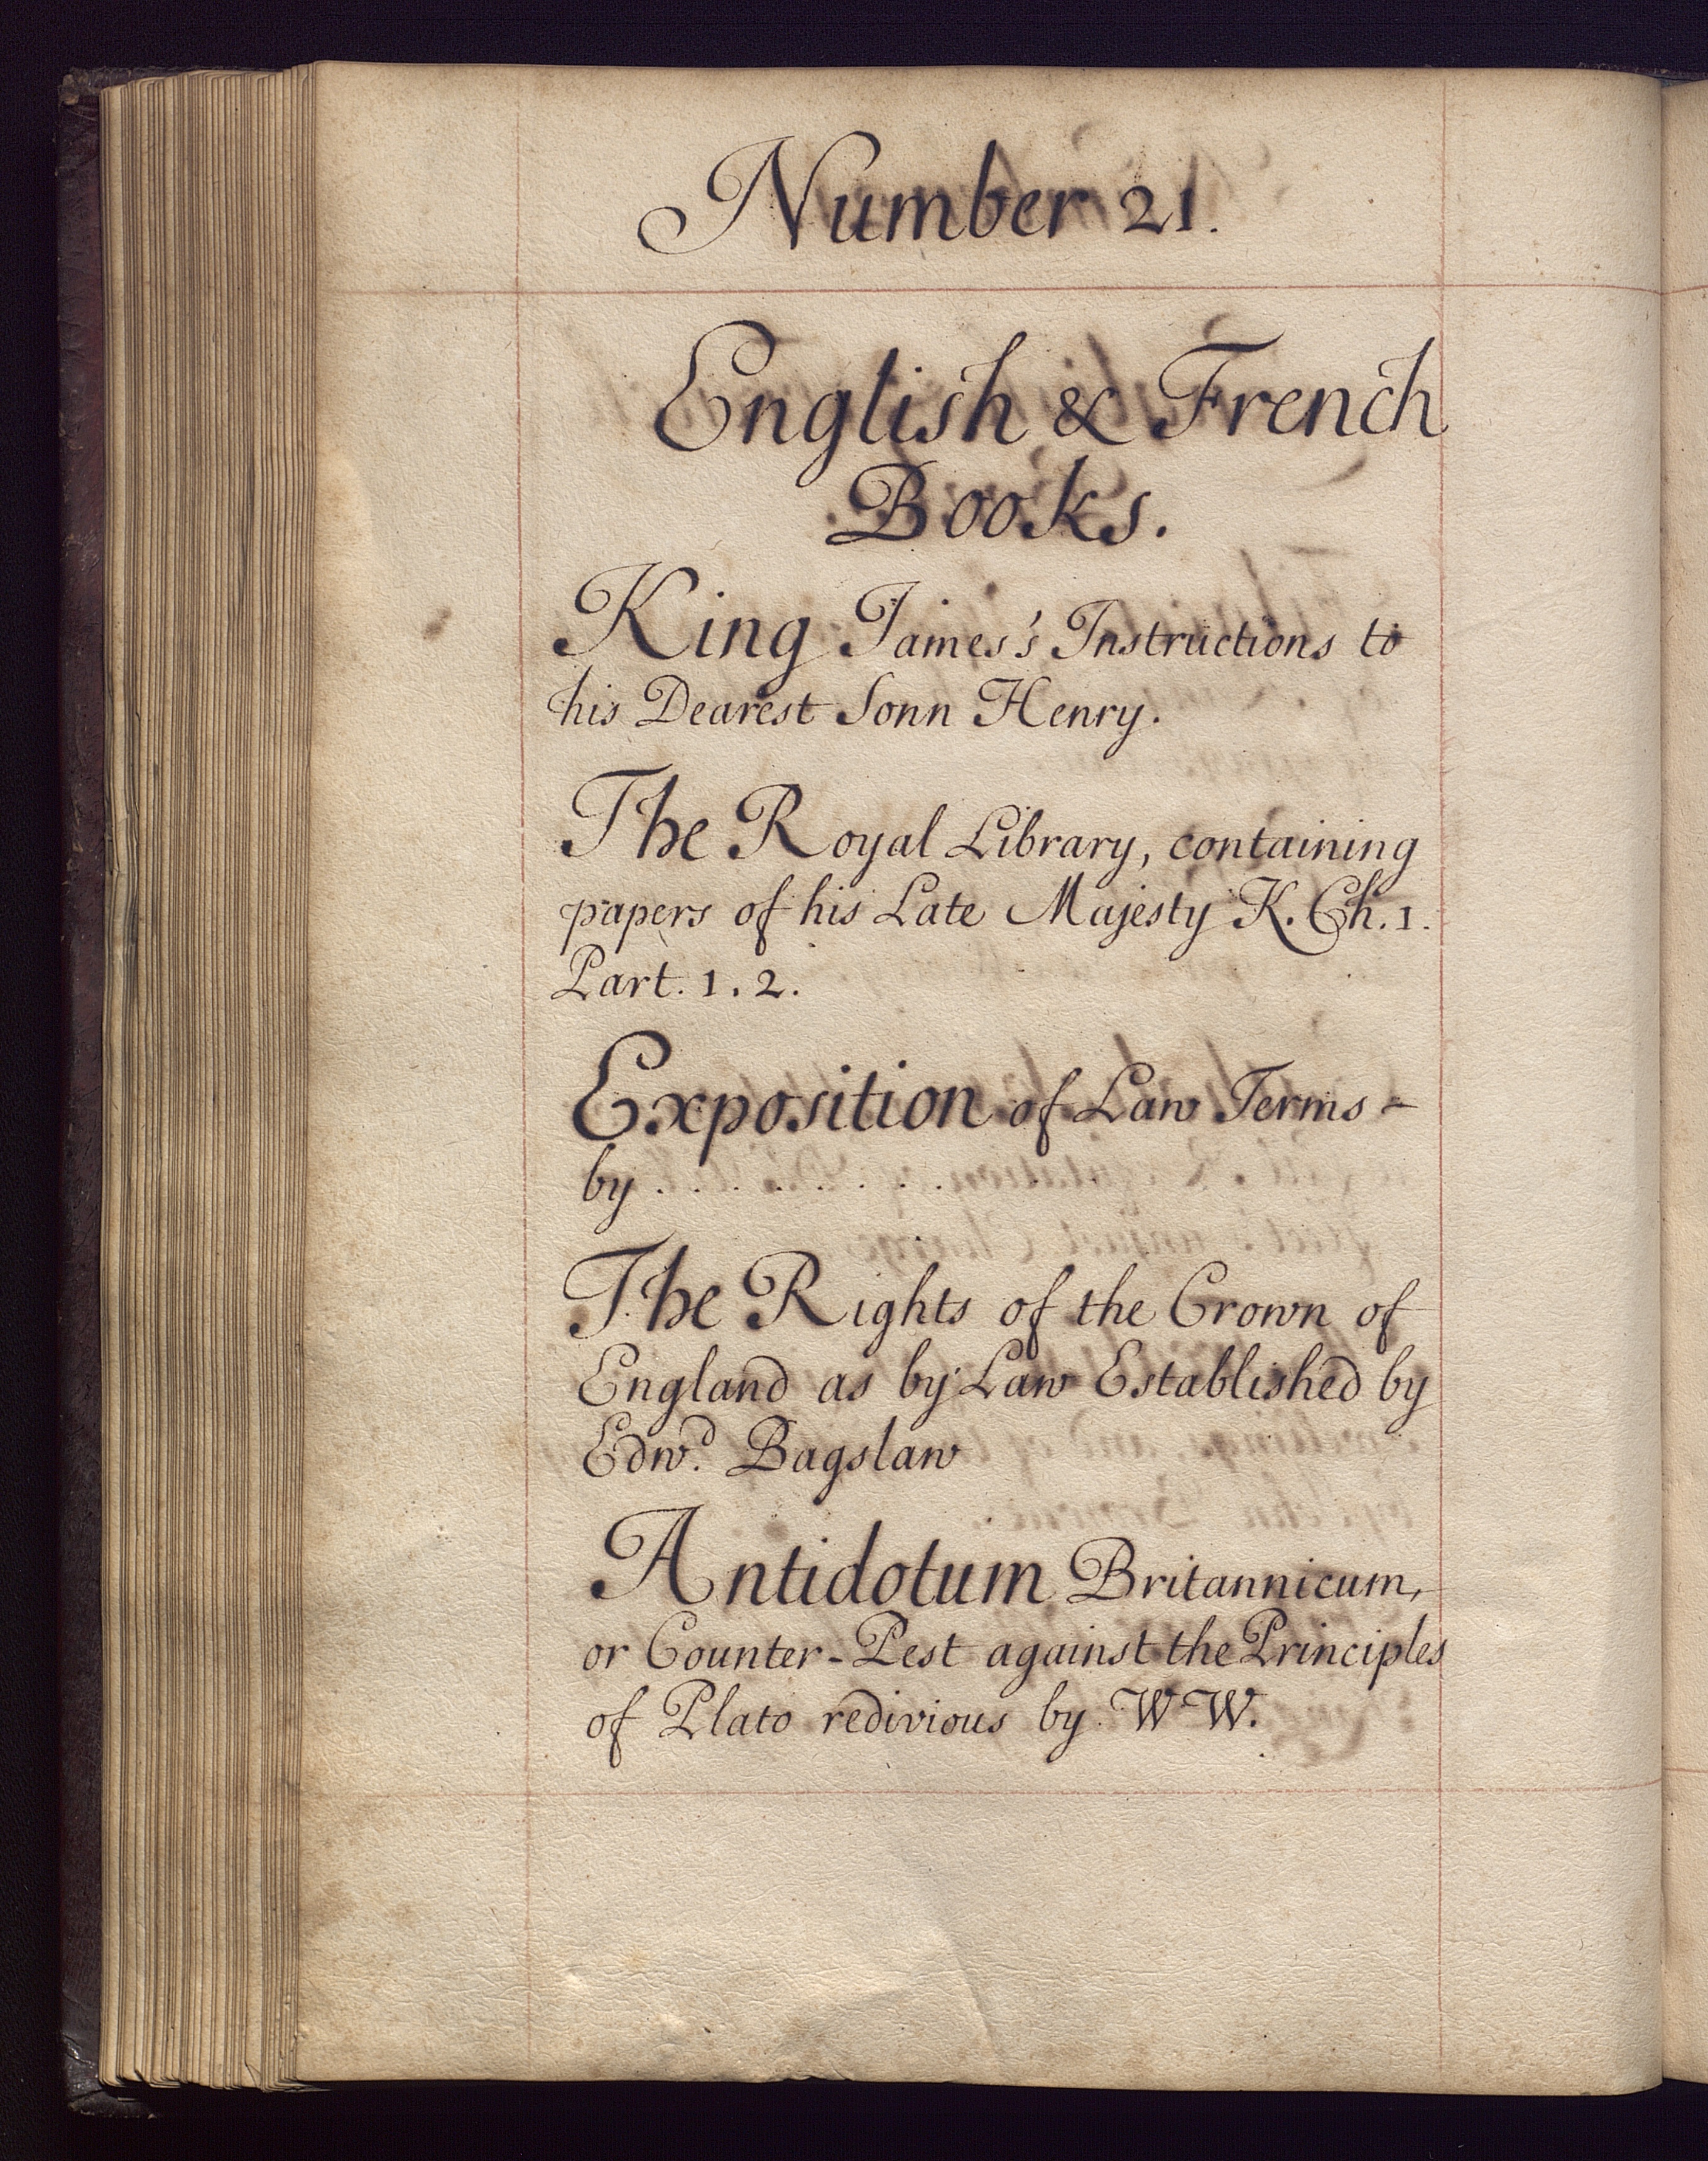 Number 21.
English & French
Books.
King James's Instructions to
his Dearest Sonn Henry.
The Royal Library, containing
papers of his Late Majesty K. Ch. 1.
Part. 1. 2.
Exposition of Law Terms -
by . . . . . . . .
The Rights of the Crown of
England as by Law Established by
Edwd. Bagslaw
Antidotum Britannicum,
or Counter-Pest against the Principles
of Plato redivious by W W.